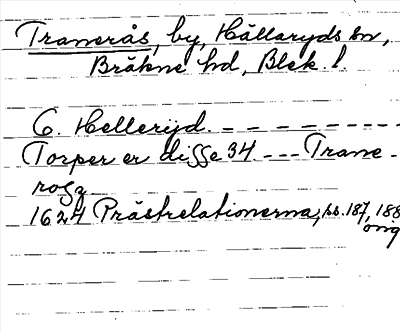 Tranerås, by, Hällaryds sn,
Bräkne hd, Blek. l.
6. Hellerijd. – – – – – – – – –
Torper er disse 34 – – – Trane-
rosz
1624 Prästrelationerna, ss. 187, 188
orig